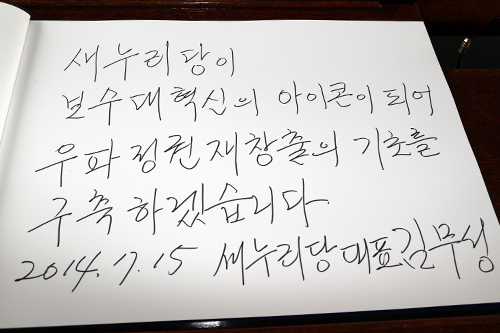 새누리당이
보수대혁신의 아이콘이 되어
우파정권재창출의 기초를
구축하겠습니다
2014. 7. 15 새누리당대표 김무성